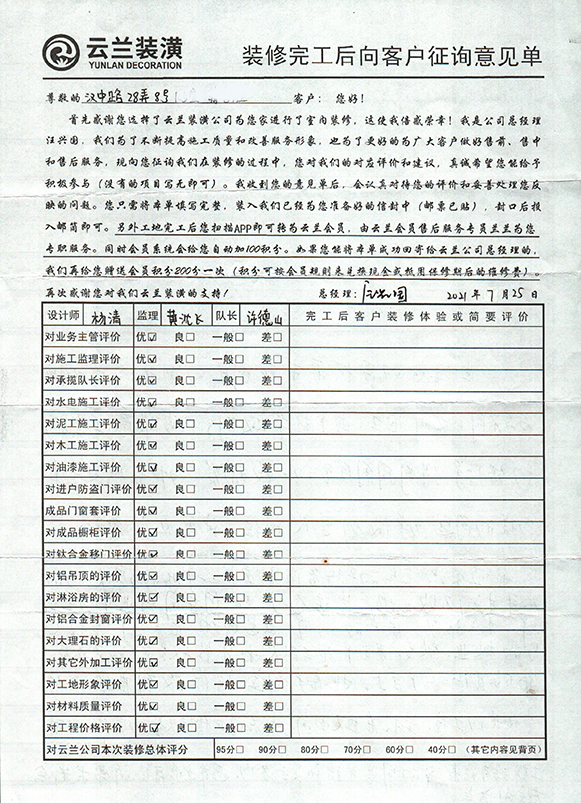 云兰装潢
YUNLAN DECORATION
装修完工后向客户征询意见单
尊敬的 汉中路28弄8号 客户：您好！
首先感谢您选择了云兰装潢公司为您家进行了室内装修，这使我倍感荣幸！我是公司总经理
汪兴国，我们为了不断提高施工质量和改善服务形象，也为了更好的为广大客户做好售前、售中
和售后服务，现向您征询我们在装修的过程中，您对我们的对应评价和建议，真诚希望您能给予
积极参与（没有的项目写无即可）。我收到您的意见单后，会认真对待您的评价和妥善处理您反
映的问题。您只需将本单填写完整，装入我们已经为您准备好的信封中（邮票已贴），封口后投
入邮筒即可。另外工地完工后您扫描APP即可转为云兰会员，由云兰会员售后服务专员兰兰为您
专职服务。同时会员系统会给您自动加100积分。如果您能将本单成功回寄给云兰公司总经理的，
我们再给您赠送会员积分200分一次（积分可按会员规则来兑换现金或抵用保修期后的维修费）。
再次感谢您对我们云兰装潢的支持！ 总经理： 2021年7月25日
设计师 杨清 监理 黄沈飞 队长 许德山 完工后客户装修体验或简要评价
对业务主管评价 优☑ 良□ 一般□ 差□
对施工监理评价 优☑ 良□ 一般□ 差□
对承揽队长评价 优☑ 良□ 一般□ 差□
对水电施工评价 优☑ 良□ 一般□ 差□
对泥工施工评价 优☑ 良□ 一般□ 差□
对木工施工评价 优☑ 良□ 一般□ 差□
对油漆施工评价 优☑ 良□ 一般□ 差□
对进户防盗门评价 优☑ 良□ 一般□ 差□
成品门窗套评价 优☑ 良□ 一般□ 差□
对成品橱柜评价 优☑ 良□ 一般□ 差□
对钛合金移门评价 优☑ 良□ 一般□ 差□
对铝吊顶的评价 优☑ 良□ 一般□ 差□
对淋浴房的评价 优☑ 良□ 一般□ 差□
对铝合金封窗评价 优☑ 良□ 一般□ 差□
对大理石的评价 优☑ 良□ 一般□ 差□
对其它外加工评价 优☑ 良□ 一般□ 差□
对工地形象评价 优☑ 良□ 一般□ 差□
对材料质量评价 优☑ 良□ 一般□ 差□
对工程价格评价 优☑ 良□ 一般□ 差□
对云兰公司本次装修总体评分 95分□ 90分□ 80分□ 70分□ 60分□ 40分□ （其它内容见背页）